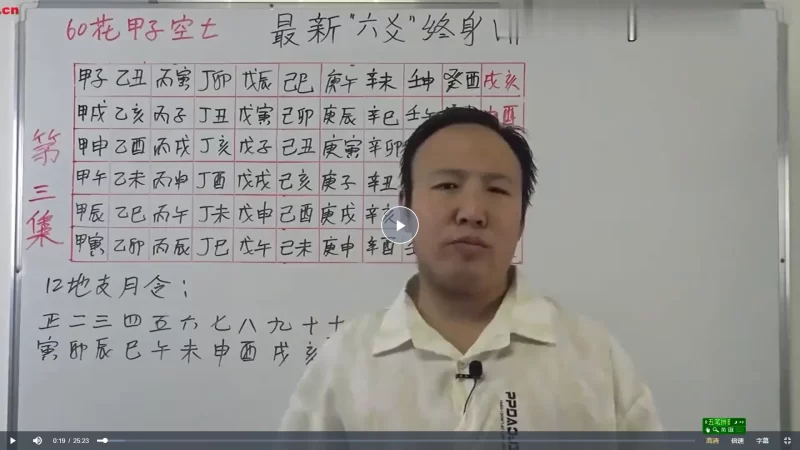 .cn
60花甲子空亡 最新"六爻"终身
甲子 乙丑 丙寅 丁卯 戊辰 己巳 庚午 辛未 壬申 癸酉 戌亥
甲戌 乙亥 丙子 丁丑 戊寅 己卯 庚辰 辛巳 壬午 酉
甲申 乙酉 丙戌 丁亥 戊子 己丑 庚寅 辛卯
甲午 乙未 丙申 丁酉 戊戌 己亥 庚子 辛丑
甲辰 乙巳 丙午 丁未 戊申 己酉 庚戌 辛亥
甲寅 乙卯 丙辰 丁巳 戊午 己未 庚申 辛酉
第三集
12地支月令：
正 二 三 四 五 六 七 八 九 十 十
寅 卯 辰 巳 午 未 申 酉 戌 亥
0:19 / 25:23
高清 倍速 字幕